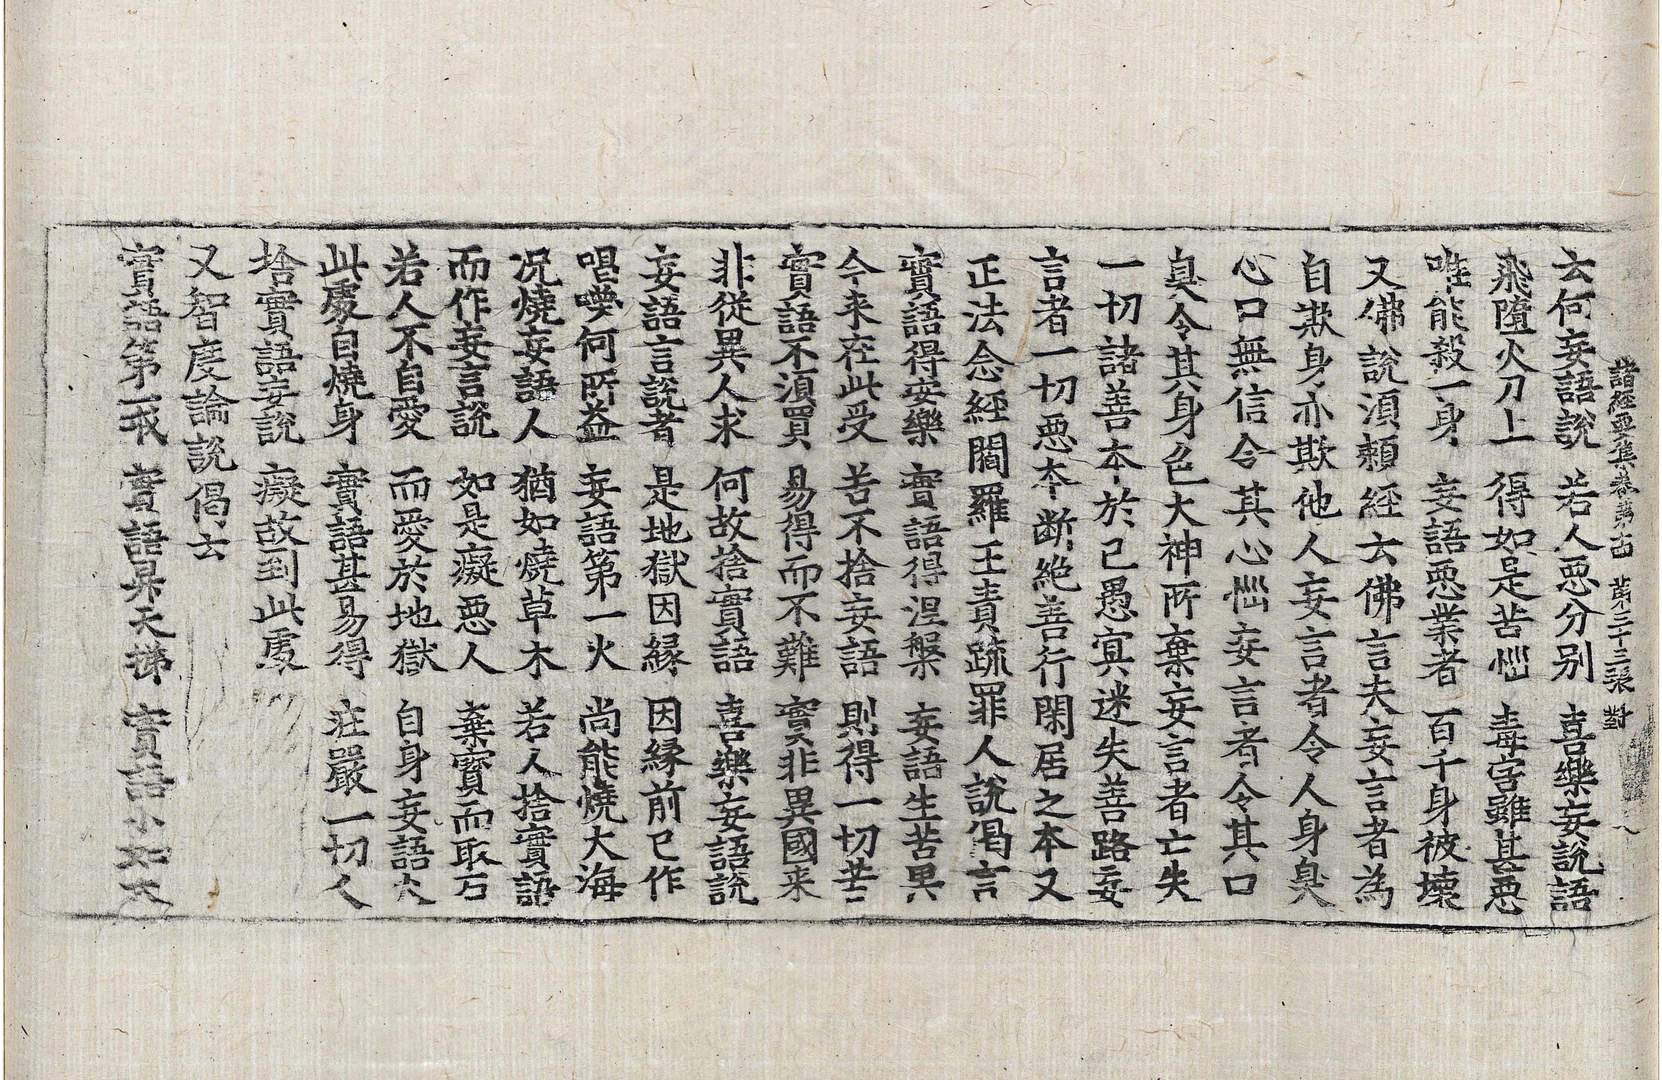 諸經要集卷第十四 第三十三張 對
云何妄語說 若人惡分別 喜樂妄說語
飛墮火刀上 得如是苦惱 毒害雖甚惡
唯能殺一身 妄語惡業者 百千身被壞
又佛說須賴經云佛言夫妄言者為
自欺身亦欺他人妄言者令人身臭
心口無信令其心惱妄言者令其口
臭令其身色大神所棄妄言者亡失
一切諸善本於己愚冥迷失善路妄
言者一切惡本斷絕善行閑居之本又
正法念經閻羅王責疏罪人說偈言
實語得安樂 實語得涅槃 妄語生苦果
今來在此受 若不捨妄語 則得一切苦
實語不須買 易得而不難 實非異國來
非從異人求 何故捨實語 喜樂妄語說
妄語言說者 是地獄因緣 因緣前已作
唱喚何所益 妄語第一火 尚能燒大海
況燒妄語人 猶如燒草木 若人捨實語
而作妄言說 如是癡惡人 棄寶而取石
若人不自愛 而愛於地獄 自身妄語火
此處自燒身 實語甚易得 莊嚴一切人
捨實語妄說 癡故到此處
又智度論說偈云
實語第一戒 實語昇天梯 實語小如大